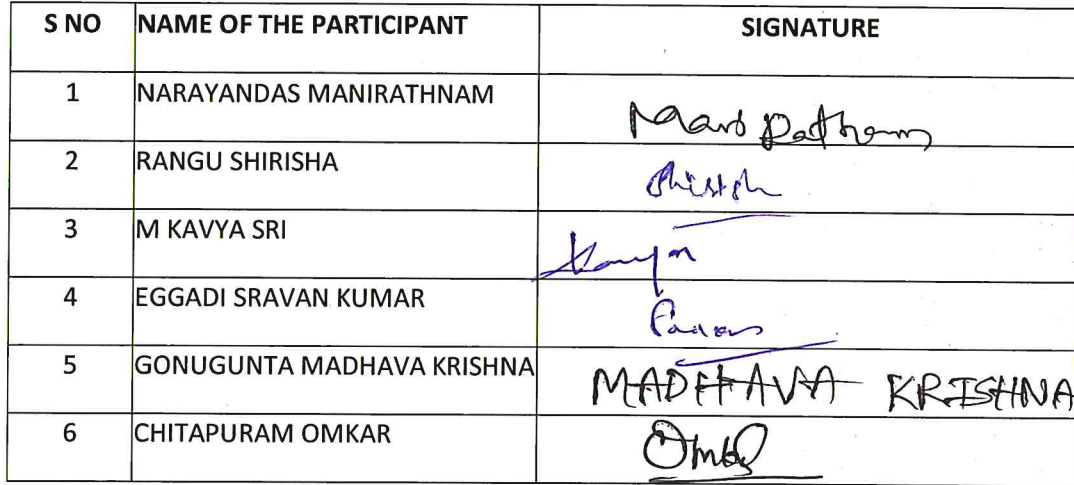 S NO NAME OF THE PARTICIPANT SIGNATURE
1 NARAYANDAS MANIRATHNAM
2 RANGU SHIRISHA
3 M KAVYA SRI
4 EGGADI SRAVAN KUMAR
5 GONUGUNTA MADHAVA KRISHNA MADHAVA KRISHNA
6 CHITAPURAM OMKAR